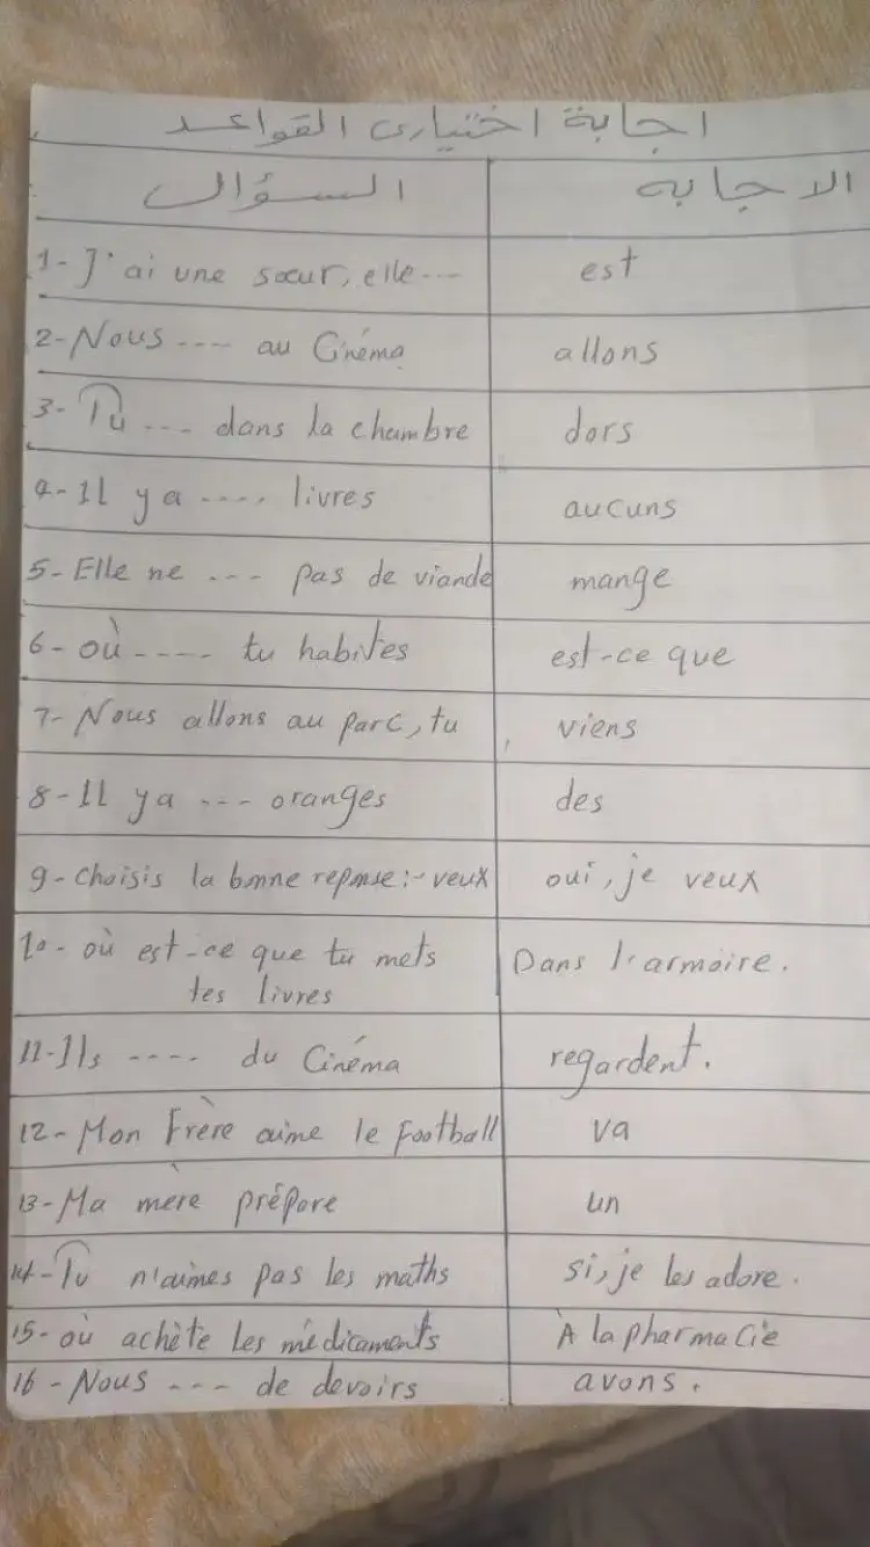 اجابة اختيارى القواعد
السؤال الاجابه
1- J'ai une sœur, elle --- est
2- Nous ---- au Cinéma allons
3- Tu --- dans la chambre dors
4- Il y a ---- livres aucuns
5- Elle ne --- pas de viande mange
6- où ---- tu habites est-ce que
7- Nous allons au parc, tu viens
8- Il y a --- oranges des
9- Choisis la bonne reponse :- veux oui, je veux
10- où est-ce que tu mets Dans l'armoire.
tes livres
11- Ils ---- du Cinéma regardent.
12- Mon Frère aime le Football va
13- Ma mère prépare un
14- Tu n'aimes pas les maths si, je les adore.
15- où achète les médicaments À la pharmacie
16- Nous --- de devoirs avons.